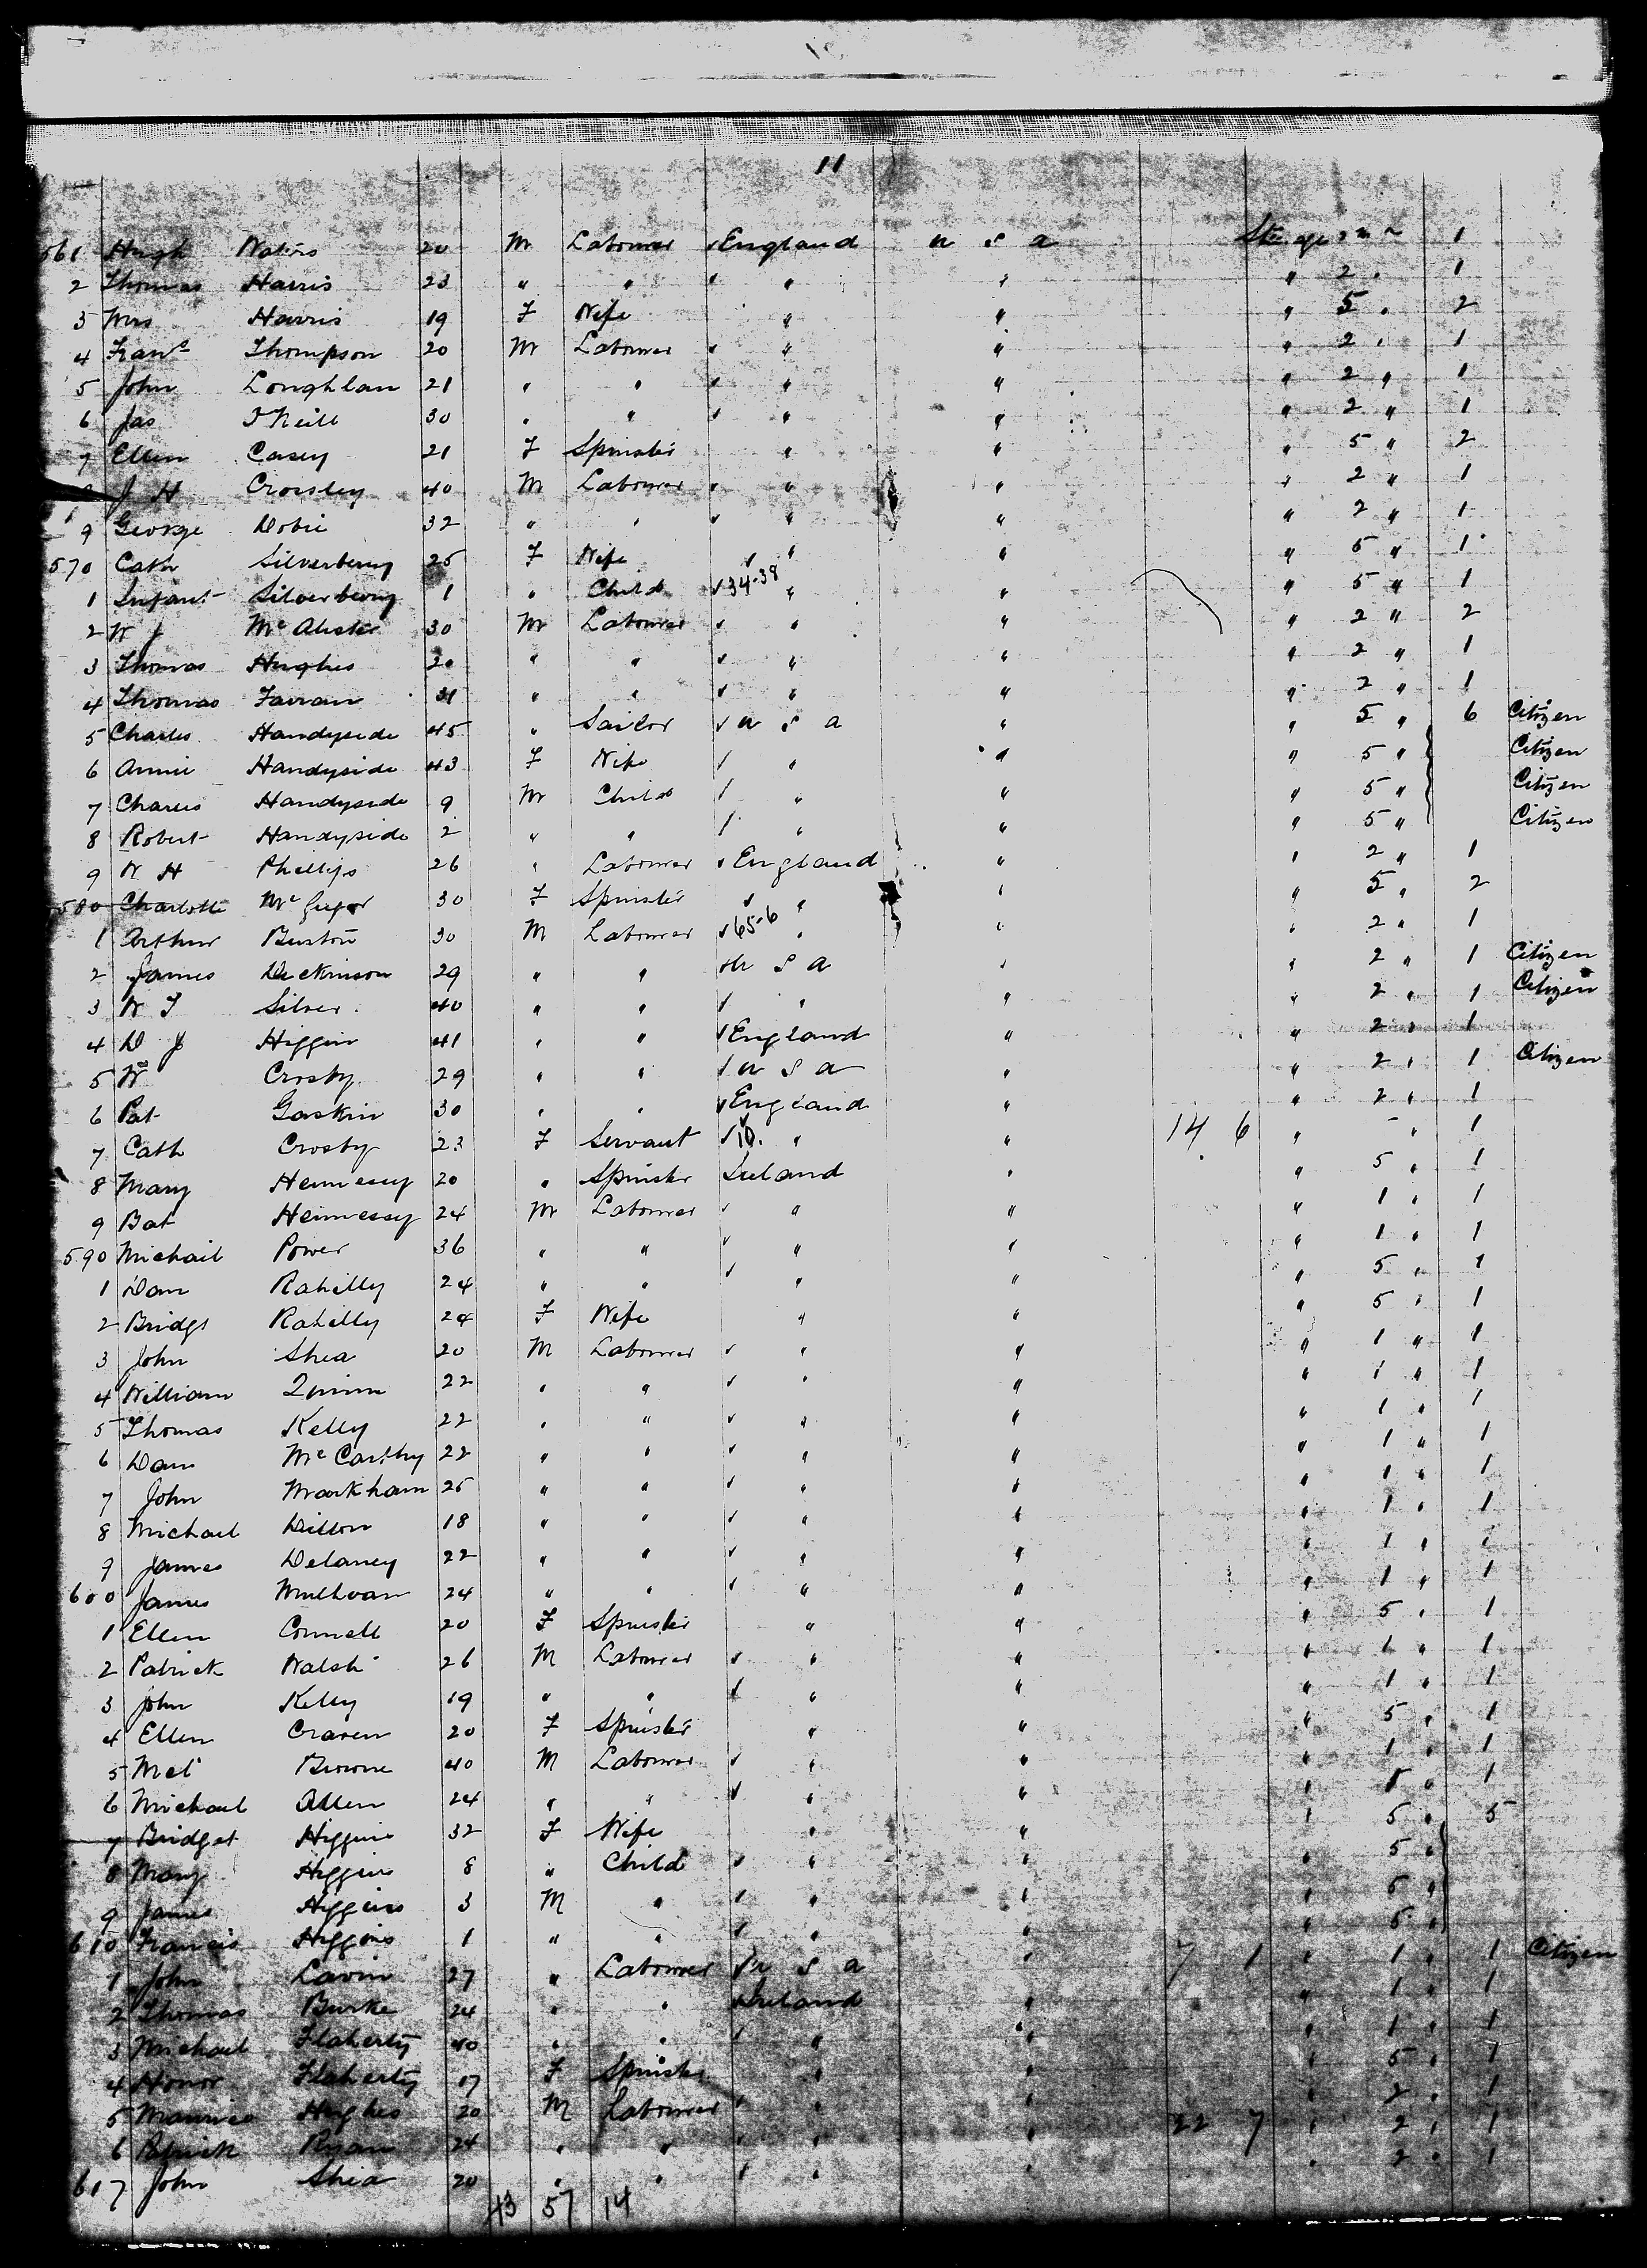 11
561 Hugh 20 M Labourer England U S A Steerage 1
2 Thomas Harris 23 " " " " " 2 " 1
3 Mrs Harris 19 F Wife " " " 5 " 2
4 Franc Thompson 20 M Labourer " " " 2 " 1
5 John Loughlan 21 " " " " " 2 " 1
6 Jas O'Neill 30 " " " " " 2 " 1
7 Ellen Casey 21 F Spinster " " " 5 " 2
J H Crossley 40 M Labourer " " " 2 " 1
9 George Dobie 32 " " " " " 2 " 1
570 Cath Silverberg 25 F Wife " " " 5 " 1
1 Infant Silverberg 1 " Child 34-38 " " " 5 " 1
2 W J McAlister 30 M Labourer " " " 2 " 2
3 Thomas Hughes 20 " " " " " 2 " 1
4 Thomas Farran 31 " " " " " 2 " 1
5 Charles Handyside 45 " Sailor U S A " " 5 " 6 Citizen
6 Annie Handyside 43 F Wife " " " 5 " Citizen
7 Charles Handyside 9 M Child " " " 5 " Citizen
8 Robert Handyside 2 " " " " " 5 " Citizen
9 W H Phillips 26 " Labourer England " " 2 " 1
580 Charlotte McGregor 30 F Spinster " " " 5 " 2
1 Arthur Burton 30 M Labourer 65-6 " " " 2 " 1
2 James Dickinson 29 " " U S A " " 2 " 1 Citizen
3 W T Silver 40 " " " " " 2 " 1 Citizen
4 D J Higgin 41 " " England " " 2 " 1
5 Wm Crosby 29 " " U S A " " 2 " 1 Citizen
6 Pat Gaskin 30 " " England " " 2 " 1
7 Cath Crosby 23 F Servant 10. " " 14 6 " - " 1
8 Mary Hennessy 20 " Spinster Ireland " " 5 " 1
9 Bat Hennessy 24 M Labourer " " " 1 " 1
590 Michail Power 36 " " " " " 1 " 1
1 Dan Rahilly 24 " " " " " 5 " 1
2 Bridgt Rahilly 24 F Wife " " " 5 " 1
3 John Shea 20 M Labourer " " " 1 " 1
4 William Quinn 22 " " " " " 1 " 1
5 Thomas Kelly 22 " " " " " 1 " 1
6 Dan McCarthy 22 " " " " " 1 " 1
7 John Markham 25 " " " " " 1 " 1
8 Michael Dillon 18 " " " " " 1 " 1
9 James Delaney 22 " " " " " 1 " 1
600 James 24 " " " " " 1 " 1
1 Ellen Connell 20 F Spinster " " " 5 " 1
2 Patrick Walsh 26 M Labourer " " " 1 " 1
3 John Kelly 19 " " " " " 1 " 1
4 Ellen Craven 20 F Spinster " " " 5 " 1
5 Browne 40 M Labourer " " " 1 " 1
6 Michael Allen 24 " " " " " 1
7 Bridget Higgins 32 F Wife " " " 5 " 5
8 Mary Higgins 8 " Child " " " 5 "
9 James Higgins 3 M " " " " 5 "
610 Francis Higgins 1 " " " " " 5 "
1 John Lavin 27 " Labourer U S A " 7 1 " 1 " 1 Citizen
2 Thomas Burke 24 " " Ireland " " 1 " 1
3 Michael Flaherty 40 " " " " " 1 " 1
4 Honor Flaherty 17 F Spinster " " " 5 " 1
5 Maurice Hughes 20 M Labourer " " " 2 " 1
6 Patrick Ryan 24 " " " " 22 7 " 2 " 1
617 John Shea 20 " " " " " 2 " 1
43 57 14